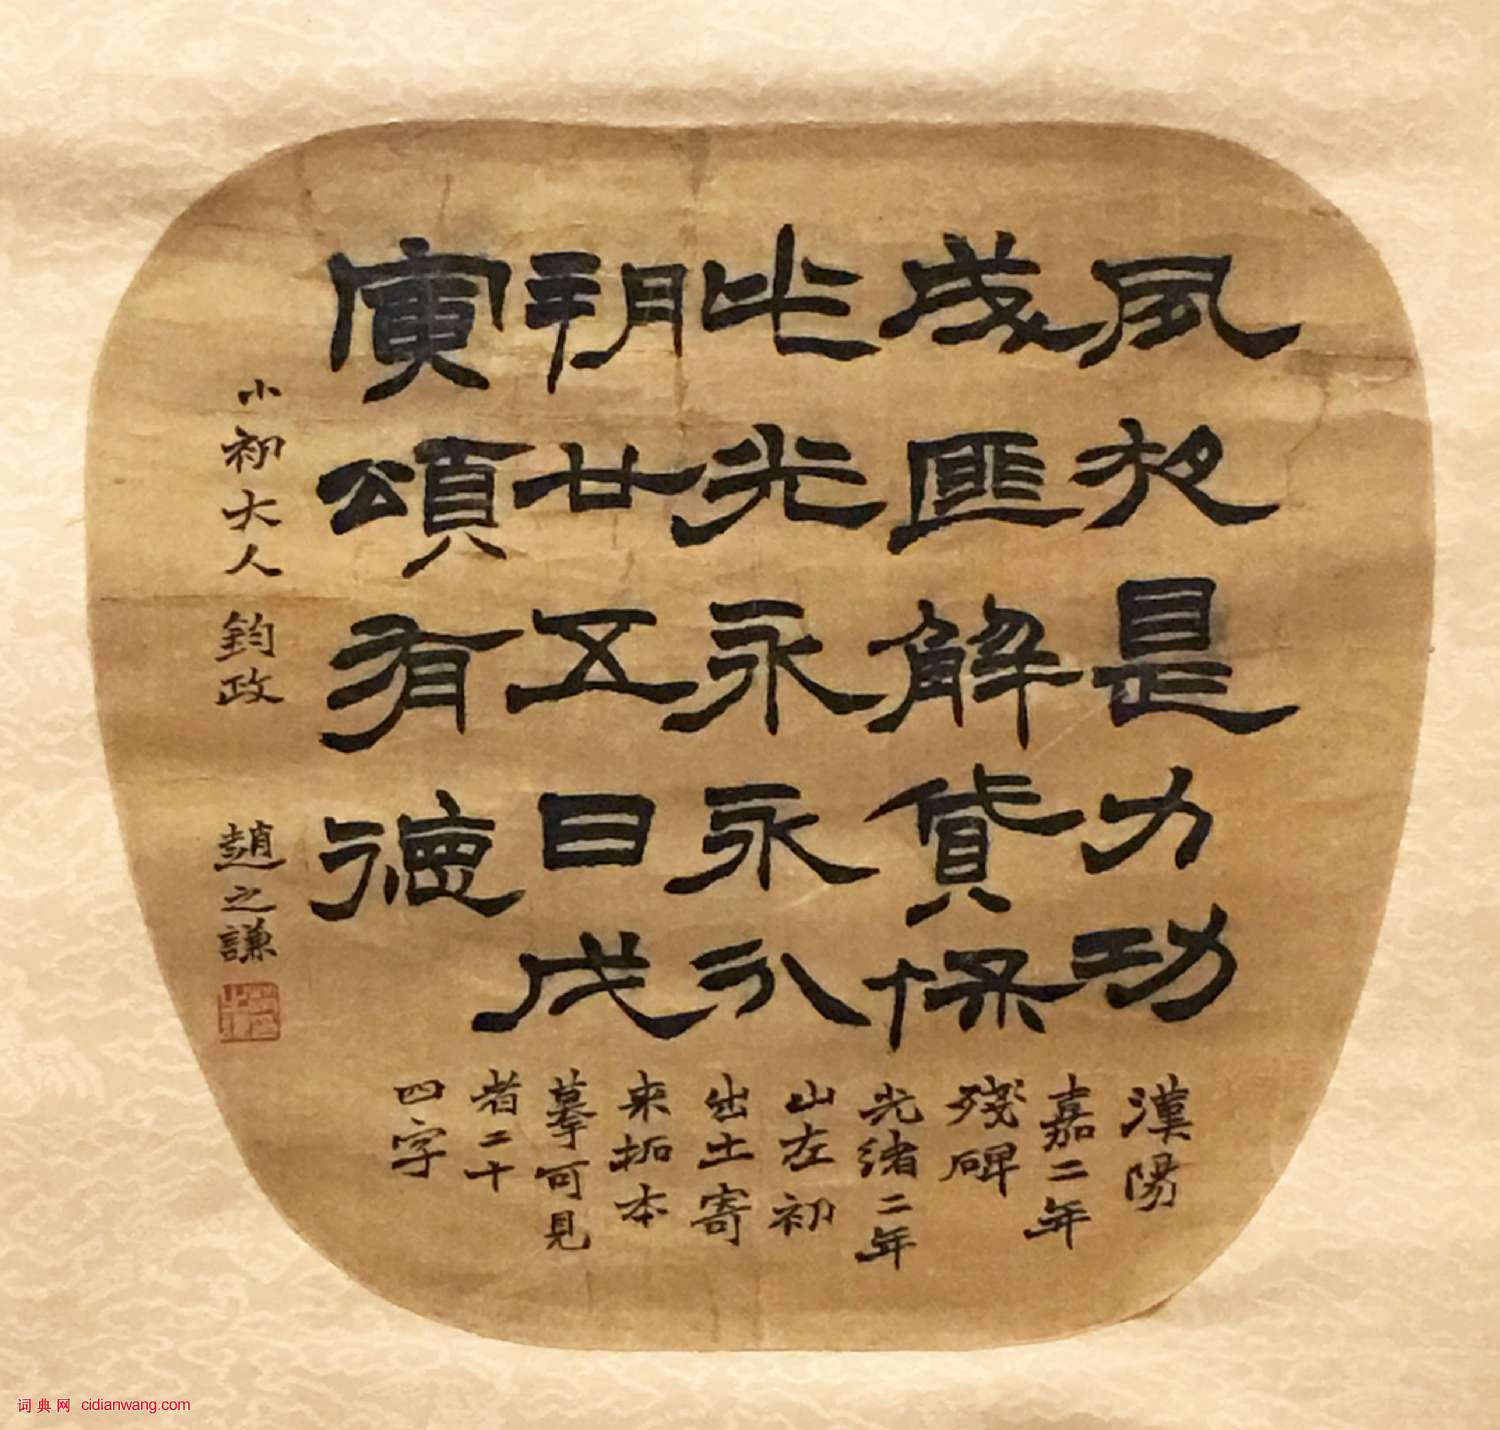 夙夜是力功
成匪解貸保
此光永永
朔廿五日戊
寅頌有德
漢陽
嘉二年
殘碑
光緒二年
山左初
出土寄
来拓本
摹可見
者二十
四字
小初大人鈞政
趙之謙
词典网 cidianwang.com